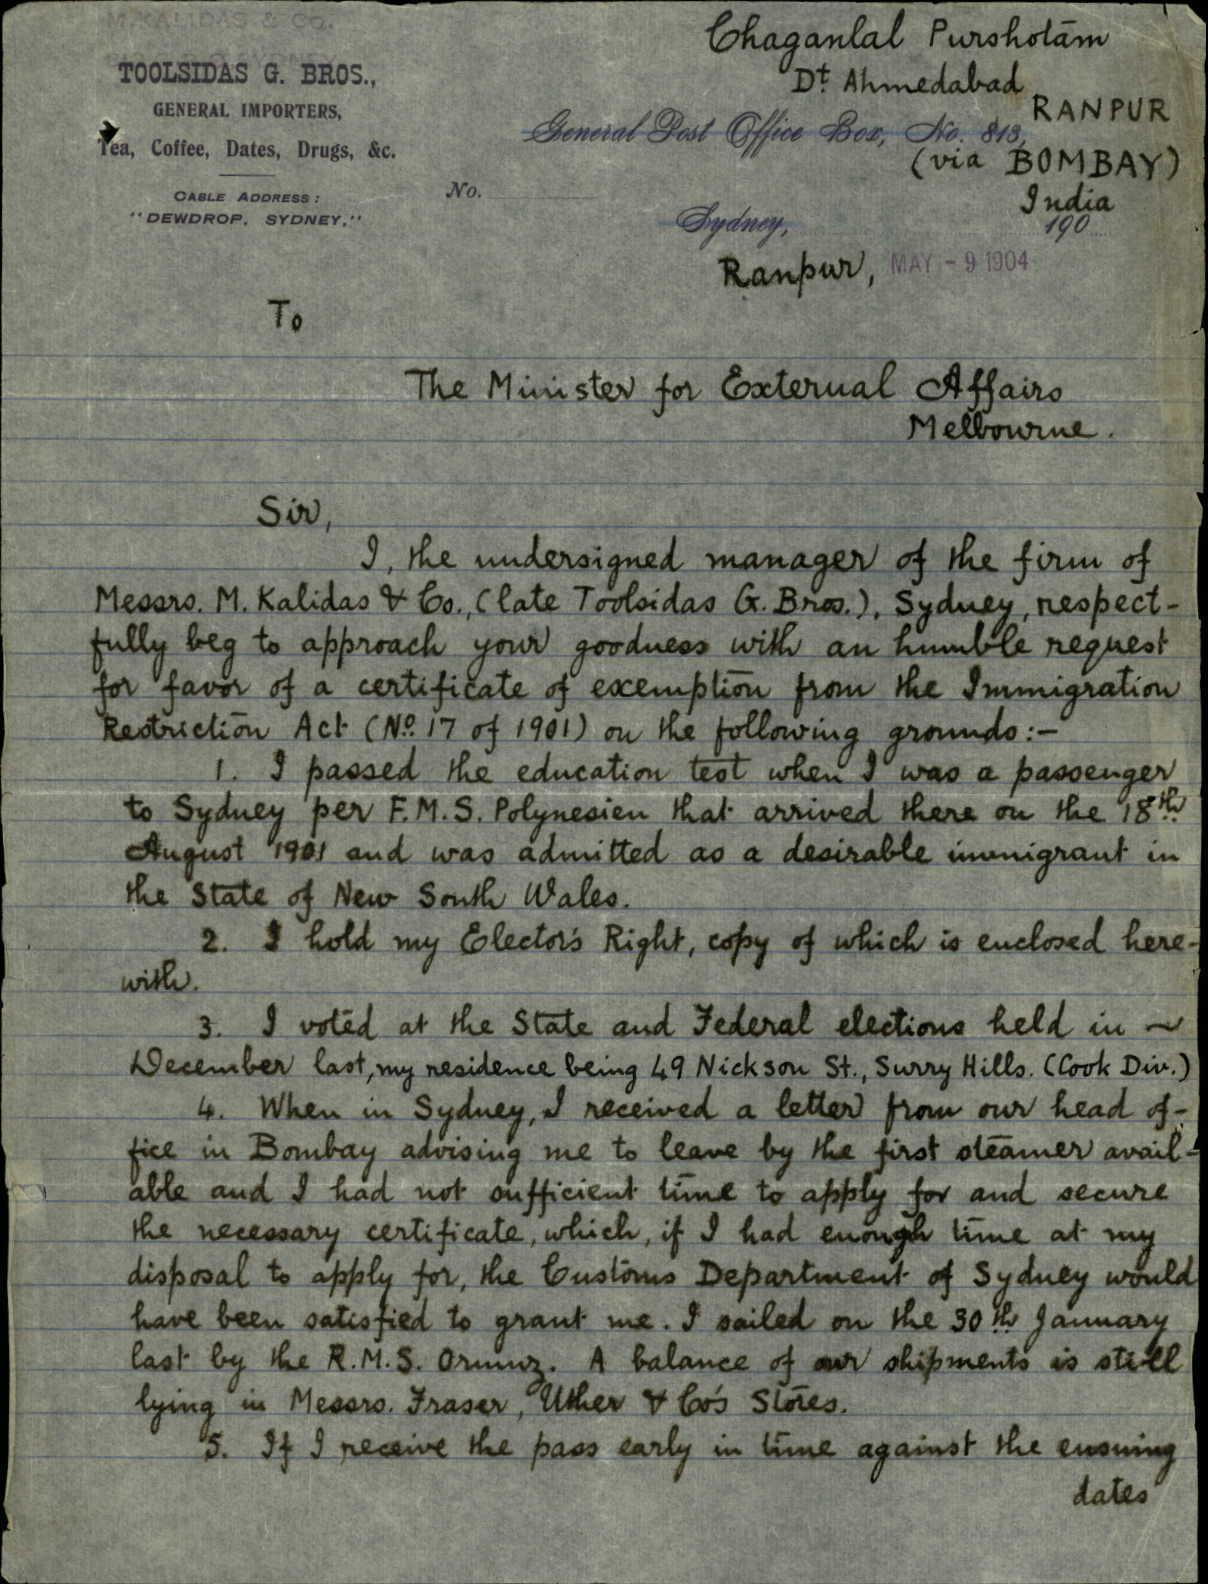 M. KALIDAS & Co.
TOOLSIDAS G. BROS.,
GENERAL IMPORTERS,
Tea, Coffee, Dates, Drugs, &c.
CABLE ADDRESS:
"DEWDROP. SYDNEY."
Chaganlal Purshotam
Dt. Ahmedabad
RANPUR
General Post Office Box, No. 813,
(via BOMBAY)
No.
India
Sydney, 190
Ranpur, MAY - 9 1904
To
The Minister for External Affairs
Melbourne.
Sir,
I, the undersigned manager of the firm of
Messrs. M. Kalidas & Co., (late Toolsidas G. Bros.), Sydney, respect-
fully beg to approach your goodness with an humble request
for favor of a certificate of exemption from the Immigration
Restriction Act (No. 17 of 1901) on the following grounds:-
1. I passed the education test when I was a passenger
to Sydney per F.M.S. Polynesien that arrived there on the 18th
August 1901 and was admitted as a desirable immigrant in
the State of New South Wales.
2. I hold my Elector's Right, copy of which is enclosed here-
with.
3. I voted at the State and Federal elections held in ~
December last, my residence being 49 Nickson St., Surry Hills. (Cook Div.)
4. When in Sydney, I received a letter from our head of-
fice in Bombay advising me to leave by the first steamer avail-
able and I had not sufficient time to apply for and secure
the necessary certificate, which, if I had enough time at my
disposal to apply for, the Customs Department of Sydney would
have been satisfied to grant me. I sailed on the 30th January
last by the R.M.S. Ormuz. A balance of our shipments is still
lying in Messrs. Fraser, Uther & Co's Stores.
5. If I receive the pass early in time against the ensuing
dates